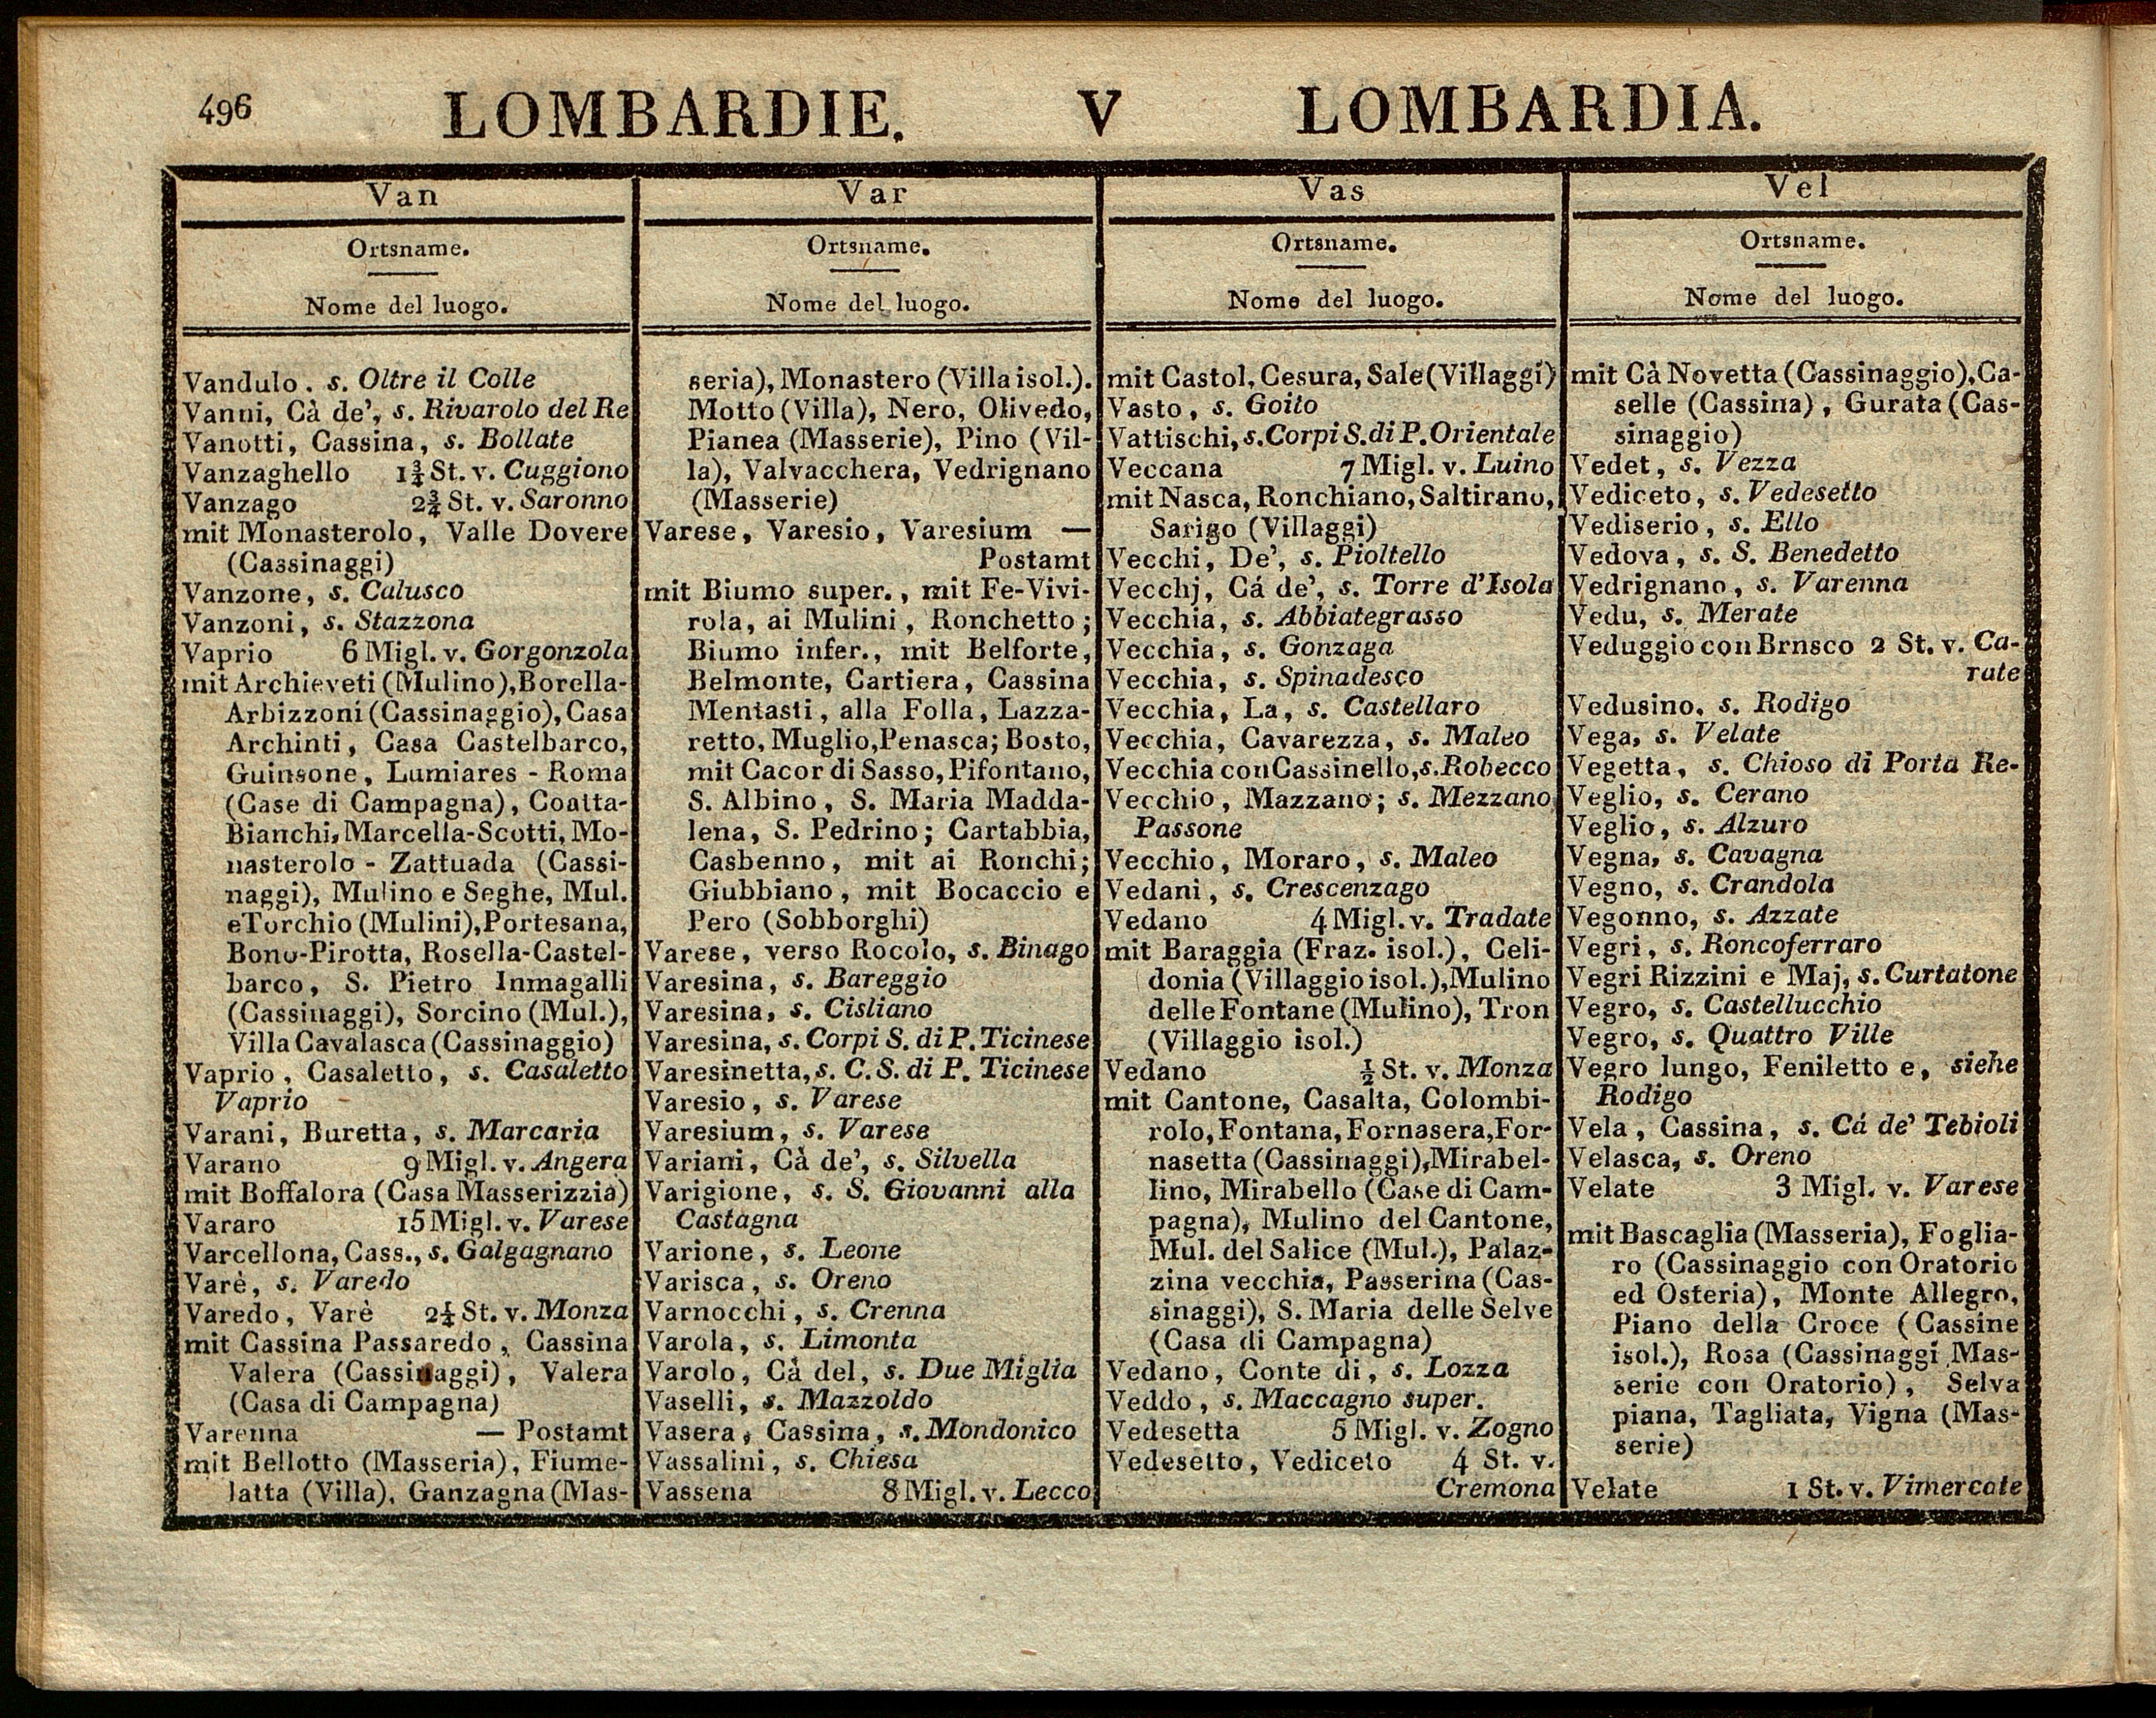 496
LOMBARDIE. V LOMBARDIA.
Van
Ortsname.
Nome del luogo.
Vandulo. s. Oltre il Colle
Vanni, Cà de', s. Rivarolo del Re
Vanotti, Cassina, s. Bollate
Vanzaghello 1¾ St. v. Cuggiono
Vanzago 2¾ St. v. Saronno
mit Monasterolo, Valle Dovere
(Cassinaggi)
Vanzone, s. Calusco
Vanzoni, s. Stazzona
Vaprio 6 Migl. v. Gorgonzola
mit Archieveti (Mulino), Borella-
Arbizzoni (Cassinaggio), Casa
Archinti, Casa Castelbarco,
Guinsone, Lumiares - Roma
(Case di Campagna), Coatta-
Bianchi, Marcella-Scotti, Mo-
nasterolo - Zattuada (Cassi-
naggi), Mulino e Seghe, Mul.
e Torchio (Mulini), Portesana,
Bono-Pirotta, Rosella-Castel-
barco, S. Pietro Inmagalli
(Cassinaggi), Sorcino (Mul.),
Villa Cavalasca (Cassinaggio)
Vaprio, Casaletto, s. Casaletto
Vaprio
Varani, Buretta, s. Marcaria
Varano 9 Migl. v. Angera
mit Boffalora (Casa Masserizzia)
Vararo 15 Migl. v. Varese
Varcellona, Cass., s. Galgagnano
Varè, s. Varedo
Varedo, Varè 2¼ St. v. Monza
mit Cassina Passaredo, Cassina
Valera (Cassinaggi), Valera
(Casa di Campagna)
Varenna — Postamt
mit Bellotto (Masseria), Fiume-
latta (Villa), Ganzagna (Mas-
Var
Ortsname.
Nome del luogo.
seria), Monastero (Villa isol.).
Motto (Villa), Nero, Olivedo,
Pianea (Masserie), Pino (Vil-
la), Valvacchera, Vedrignano
(Masserie)
Varese, Varesio, Varesium —
Postamt
mit Biumo super., mit Fe-Vivi-
rola, ai Mulini, Ronchetto;
Biumo infer., mit Belforte,
Belmonte, Cartiera, Cassina
Mentasti, alla Folla, Lazza-
retto, Muglio, Penasca; Bosto,
mit Cacor di Sasso, Pifontano,
S. Albino, S. Maria Madda-
lena, S. Pedrino; Cartabbia,
Casbenno, mit ai Ronchi;
Giubbiano, mit Bocaccio e
Pero (Sobborghi)
Varese, verso Rocolo, s. Binago
Varesina, s. Bareggio
Varesina, s. Cisliano
Varesina, s. Corpi S. di P. Ticinese
Varesinetta, s. C. S. di P. Ticinese
Varesio, s. Varese
Varesium, s. Varese
Variani, Cà de', s. Silvella
Varigione, s. S. Giovanni alla
Castagna
Varione, s. Leone
Varisca, s. Oreno
Varnocchi, s. Crenna
Varola, s. Limonta
Varolo, Cà del, s. Due Miglia
Vaselli, s. Mazzoldo
Vasera, Cassina, s. Mondonico
Vassalini, s. Chiesa
Vassena 8 Migl. v. Lecco
Vas
Ortsname.
Nome del luogo.
mit Castol, Cesura, Sale (Villaggi)
Vasto, s. Goito
Vattischi, s. Corpi S. di P. Orientale
Veccana 7 Migl. v. Luino
mit Nasca, Ronchiano, Saltirano,
Sarigo (Villaggi)
Vecchi, De', s. Pioltello
Vecchj, Cá de', s. Torre d'Isola
Vecchia, s. Abbiategrasso
Vecchia, s. Gonzaga
Vecchia, s. Spinadesco
Vecchia, La, s. Castellaro
Vecchia, Cavarezza, s. Maleo
Vecchia con Cassinello, s. Robecco
Vecchio, Mazzano; s. Mezzano
Passone
Vecchio, Moraro, s. Maleo
Vedani, s. Crescenzago
Vedano 4 Migl. v. Tradate
mit Baraggia (Fraz. isol.), Celi-
donia (Villaggio isol.), Mulino
delle Fontane (Mulino), Tron
(Villaggio isol.)
Vedano ½ St. v. Monza
mit Cantone, Casalta, Colombi-
rolo, Fontana, Fornasera, For-
nasetta (Cassinaggi), Mirabel-
lino, Mirabello (Case di Cam-
pagna), Mulino del Cantone,
Mul. del Salice (Mul.), Palaz-
zina vecchia, Passerina (Cas-
sinaggi), S. Maria delle Selve
(Casa di Campagna)
Vedano, Conte di, s. Lozza
Veddo, s. Maccagno super.
Vedesetta 5 Migl. v. Zogno
Vedesetto, Vediceto 4 St. v.
Cremona
Vel
Ortsname.
Nome del luogo.
mit Cà Novetta (Cassinaggio), Ca-
selle (Cassina), Gurata (Cas-
sinaggio)
Vedet, s. Vezza
Vediceto, s. Vedesetto
Vediserio, s. Ello
Vedova, s. S. Benedetto
Vedrignano, s. Varenna
Vedu, s. Merate
Veduggio con Brnsco 2 St. v. Ca-
rate
Vedusino, s. Rodigo
Vega, s. Velate
Vegetta, s. Chioso di Porta Re-
Veglio, s. Cerano
Veglio, s. Alzuro
Vegna, s. Cavagna
Vegno, s. Crandola
Vegonno, s. Azzate
Vegri, s. Roncoferraro
Vegri Rizzini e Maj, s. Curtatone
Vegro, s. Castellucchio
Vegro, s. Quattro Ville
Vegro lungo, Feniletto e, siehe
Rodigo
Vela, Cassina, s. Cá de' Tebioli
Velasca, s. Oreno
Velate 3 Migl. v. Varese
mit Bascaglia (Masseria), Foglia-
ro (Cassinaggio con Oratorio
ed Osteria), Monte Allegro,
Piano della Croce (Cassine
isol.), Rosa (Cassinaggi Mas-
serie con Oratorio), Selva
piana, Tagliata, Vigna (Mas-
serie)
Velate 1 St. v. Vimercate